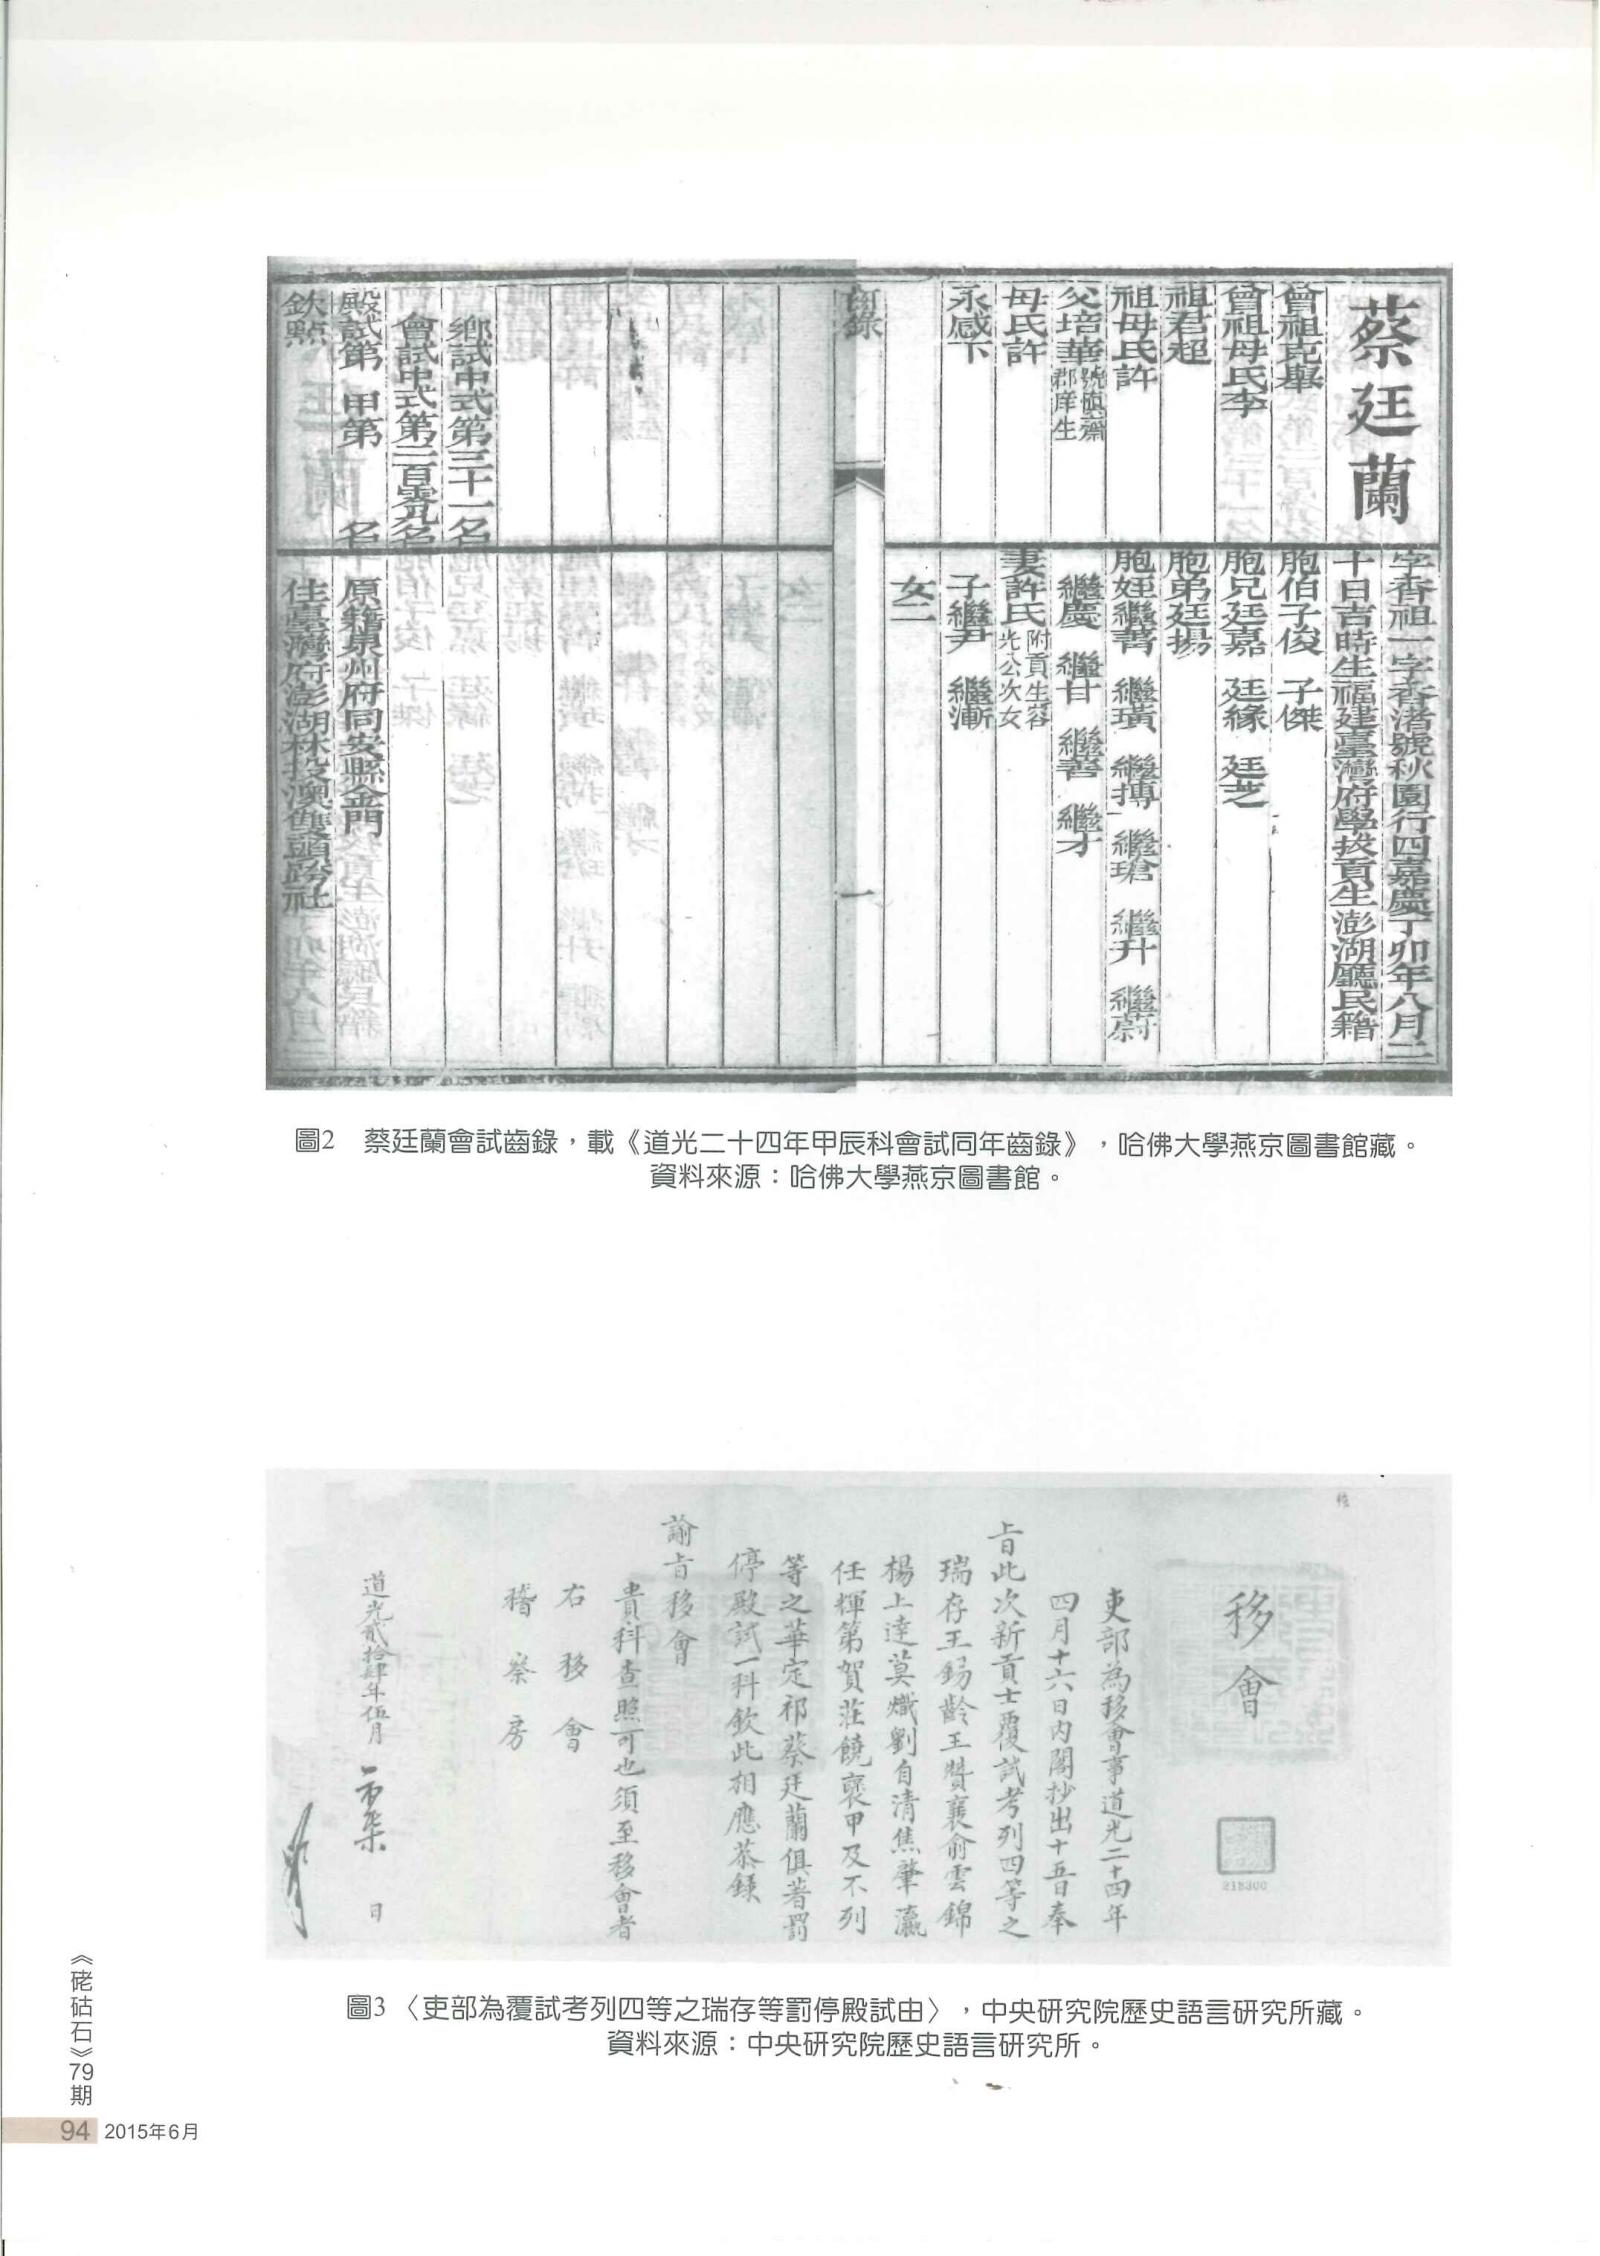 蔡廷蘭
字香祖一字香渚號秋園行四嘉慶丁卯年八月二
十日吉時生福建臺灣府學拔貢生澎湖廳民籍
曾祖克舉
胞伯子俊 子傑
曾祖母氏李
胞兄廷嘉 廷緣 廷芝
祖君超
胞弟廷揚
祖母氏許
胞姪繼善 繼璜 繼摶 繼瑲 繼升 繼蔚
父培華 號慎齋 郡庠生
繼慶 繼甘 繼善 繼才
母氏許
妻許氏 附貢生容光公次女
永感下
子繼尹 繼漸
女二
齒錄
一
鄉試中式第三十一名
會試中式第二百零九名
殿試第 甲第 名
原籍泉州府同安縣金門
欽點
住臺灣府澎湖林投澳雙頭跨社
圖2 蔡廷蘭會試齒錄，載《道光二十四年甲辰科會試同年齒錄》，哈佛大學燕京圖書館藏。
資料來源：哈佛大學燕京圖書館。
移會
218300
吏部為移會事道光二十四年
四月十六日內閣抄出十五日奉
旨此次新貢士覆試考列四等之
瑞存王錫齡王贊襄俞雲錦
楊上達莫熾劉自清焦肇瀛
任輝第賀莊饒褎甲及不列
等之華定祁蔡廷蘭俱著罰
停殿試一科欽此相應恭錄
諭旨移會
貴科查照可也須至移會者
右移會
稽察房
道光貳拾肆年伍月 日
圖3 〈吏部為覆試考列四等之瑞存等罰停殿試由〉，中央研究院歷史語言研究所藏。
資料來源：中央研究院歷史語言研究所。
《硓𥑮石》79期
94 2015年6月